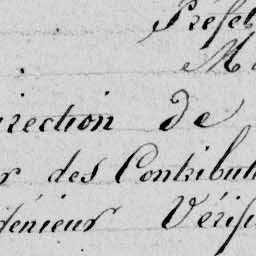 Préfet
M
irection de
r des Contributi
génieur Vérifi